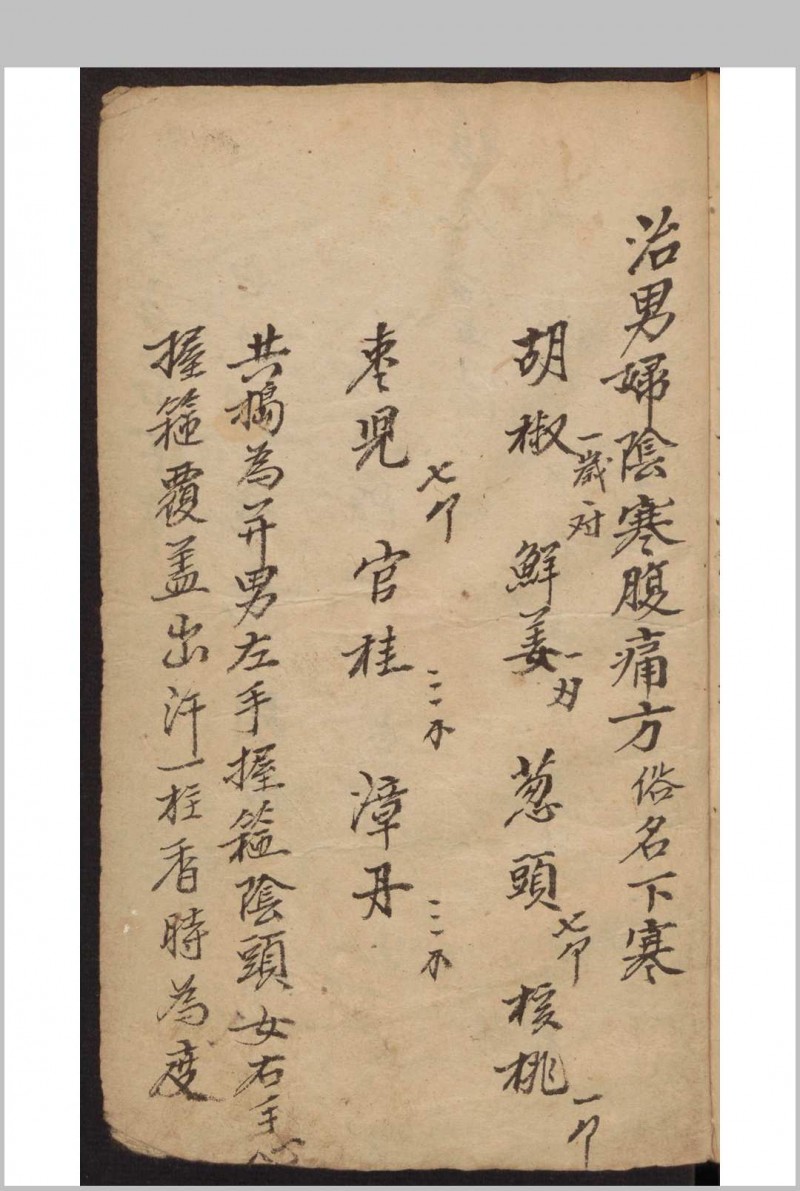 治男婦陰寒腹痛方俗名下寒
胡椒一歲一對 鮮姜一刄 葱頭七个 核桃一个
枣児七个 官桂二不 漳丹二不
共搗為并男左手握篐陰頭女右手心
握篐覆盖出汗一柱香時為度